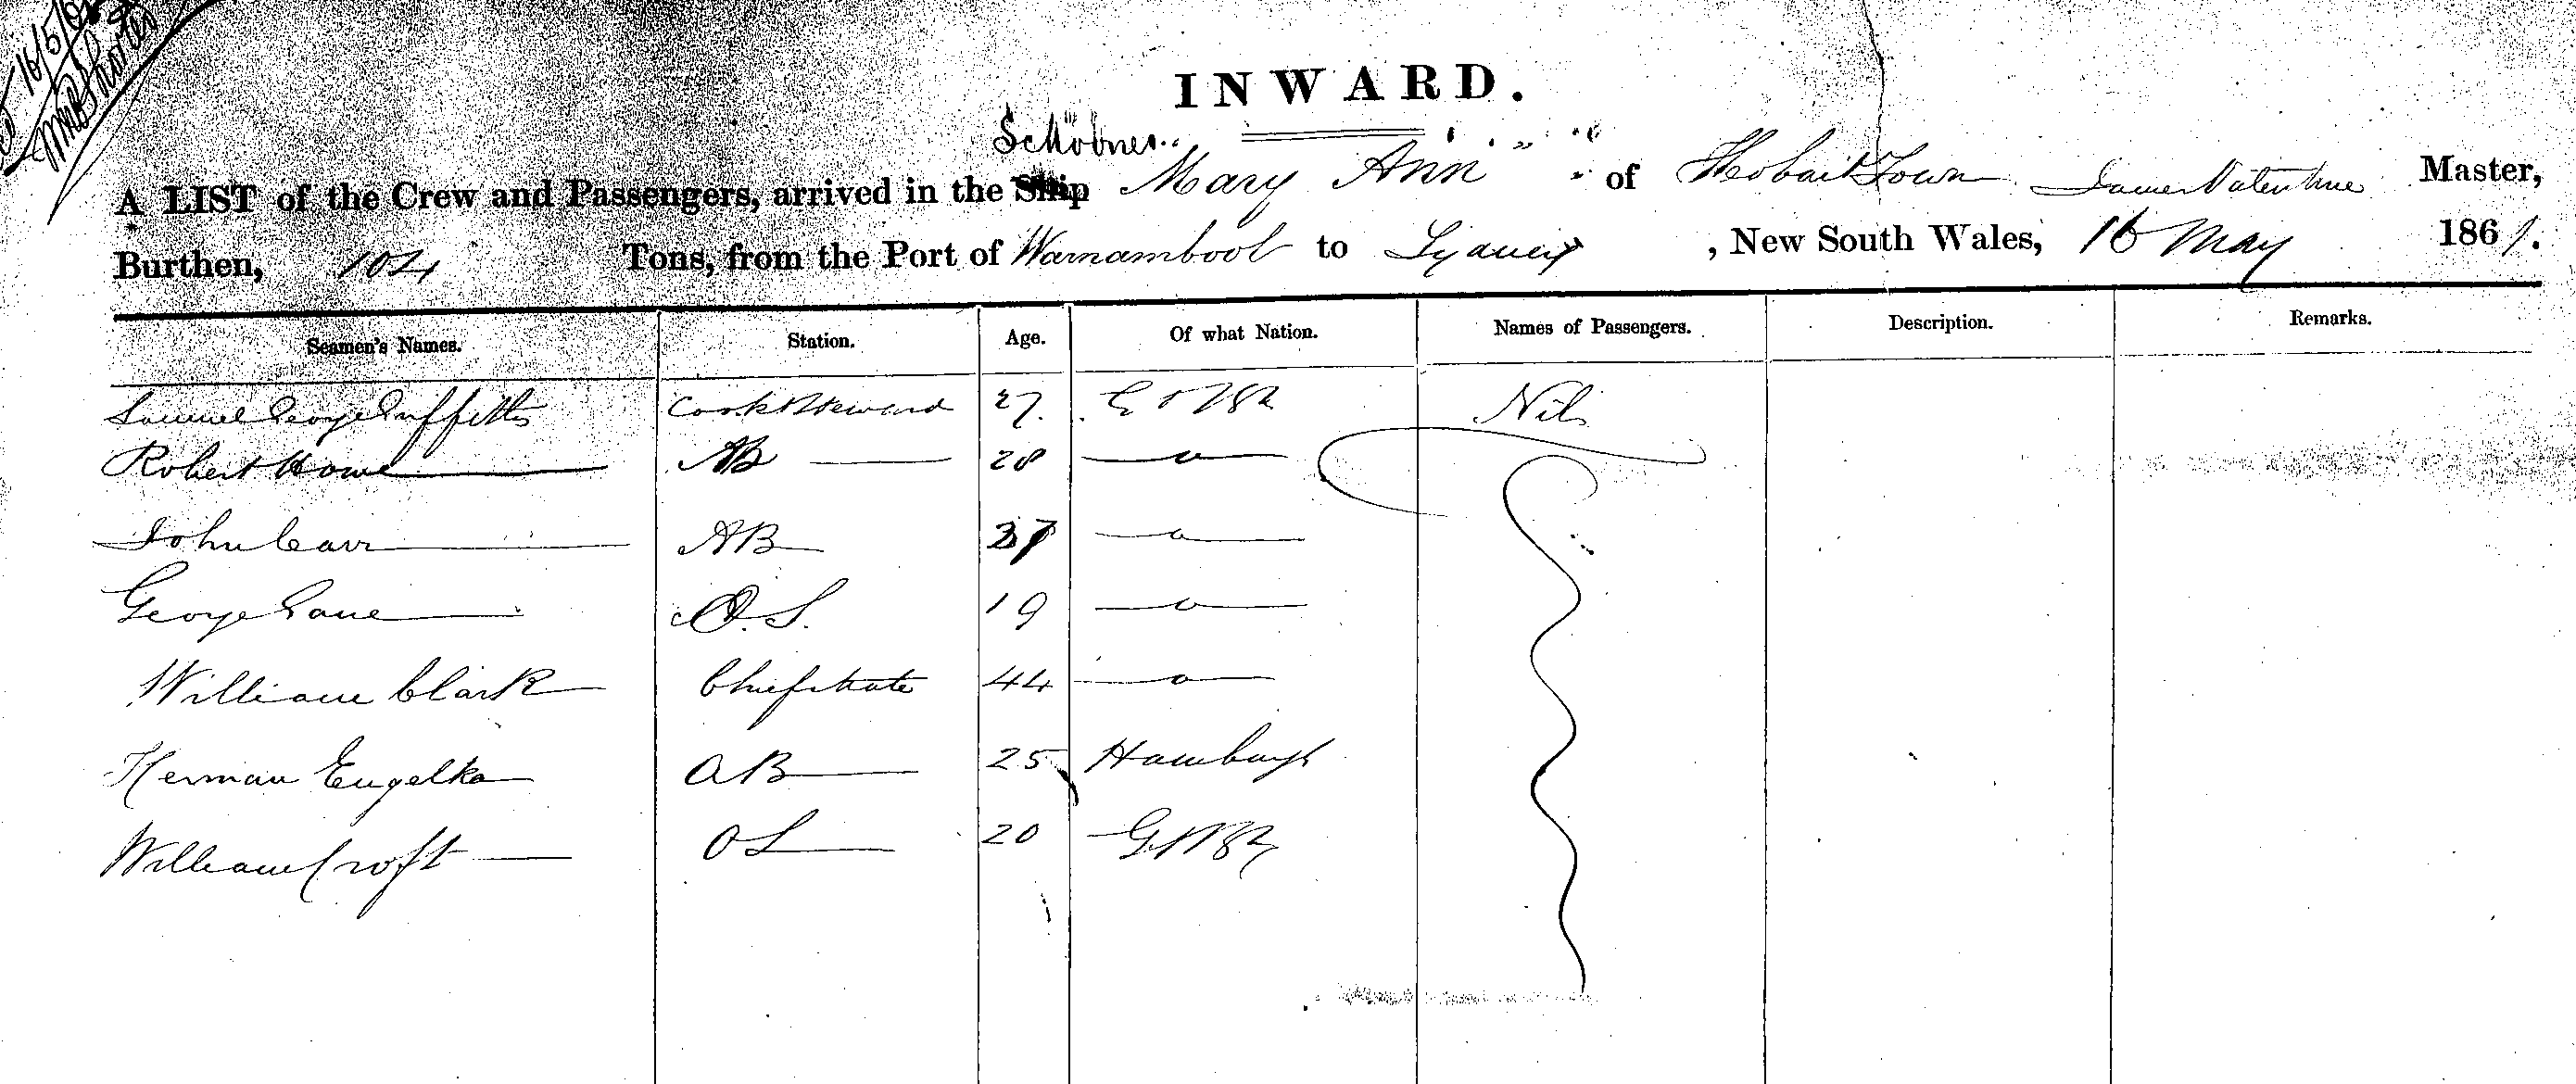 16/5/
INWARD.
Schooner
A LIST of the Crew and Passengers, arrived in the Ship Mary Ann of Hobart Town James Valentine Master,
Burthen, 104 Tons, from the Port of Warnambool to Sydney, New South Wales, 16 May 1861.
Seamen's Names. Station. Age. Of what Nation. Names of Passengers. Description. Remarks.
Samuel George Griffiths Cook & Steward 27 Nil
Robert Howe AB 28
John Carr AB 37
George Lane O.S. 19
William Clark Chief Mate 44
Herman Engelka AB 25 Hamburgh
William Croft OS 20